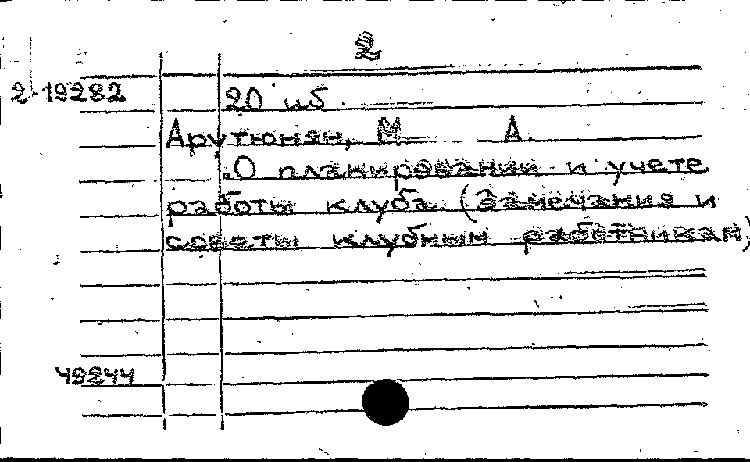 2
2-19282
20 иб
Арутюнян, М А.
О планировании и учете
работы клуба (Замечания и
советы клубным работникам)
49244